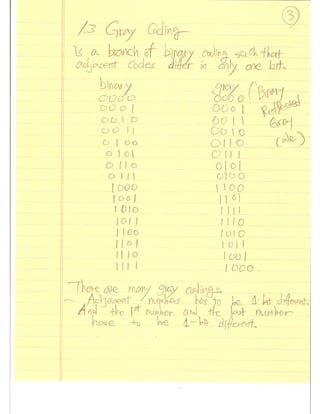 3
1.3 Gray Coding
Is a branch of binary coding such that
adjacent codes differ in only one bit.
binary gray (Binary
0000 0000 Reflected
0001 0001 Gray
0010 0011 code)
0011 0010
0100 0110
0101 0111
0110 0101
0111 0100
1000 1100
1001 1101
1010 1111
1011 1110
1100 1010
1101 1011
1110 1001
1111 1000.
There are many gray codings.
- Adjacent numbers has to be 1-bit different.
And the 1st number and the last number
have to be 1-bit different.